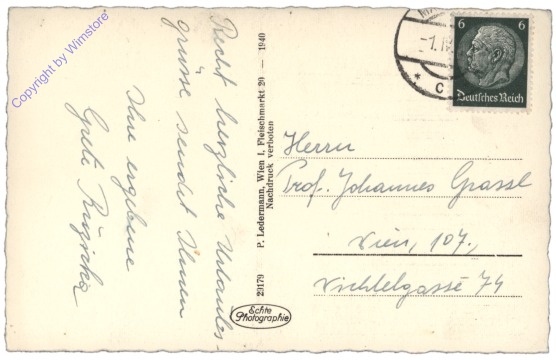 Copyright by Wimstore
Recht herzliche Urlaubs-
grüsse sendet Ihnen
Ihre ergebene
Greti
P. Ledermann, Wien I, Fleischmarkt 20 — 1940
Nachdruck verboten
29179
Echte
Photographie
-1.IV
C
6 6
Deutsches Reich
Herrn
Prof. Johannes Grassl
Wien, 107,
74